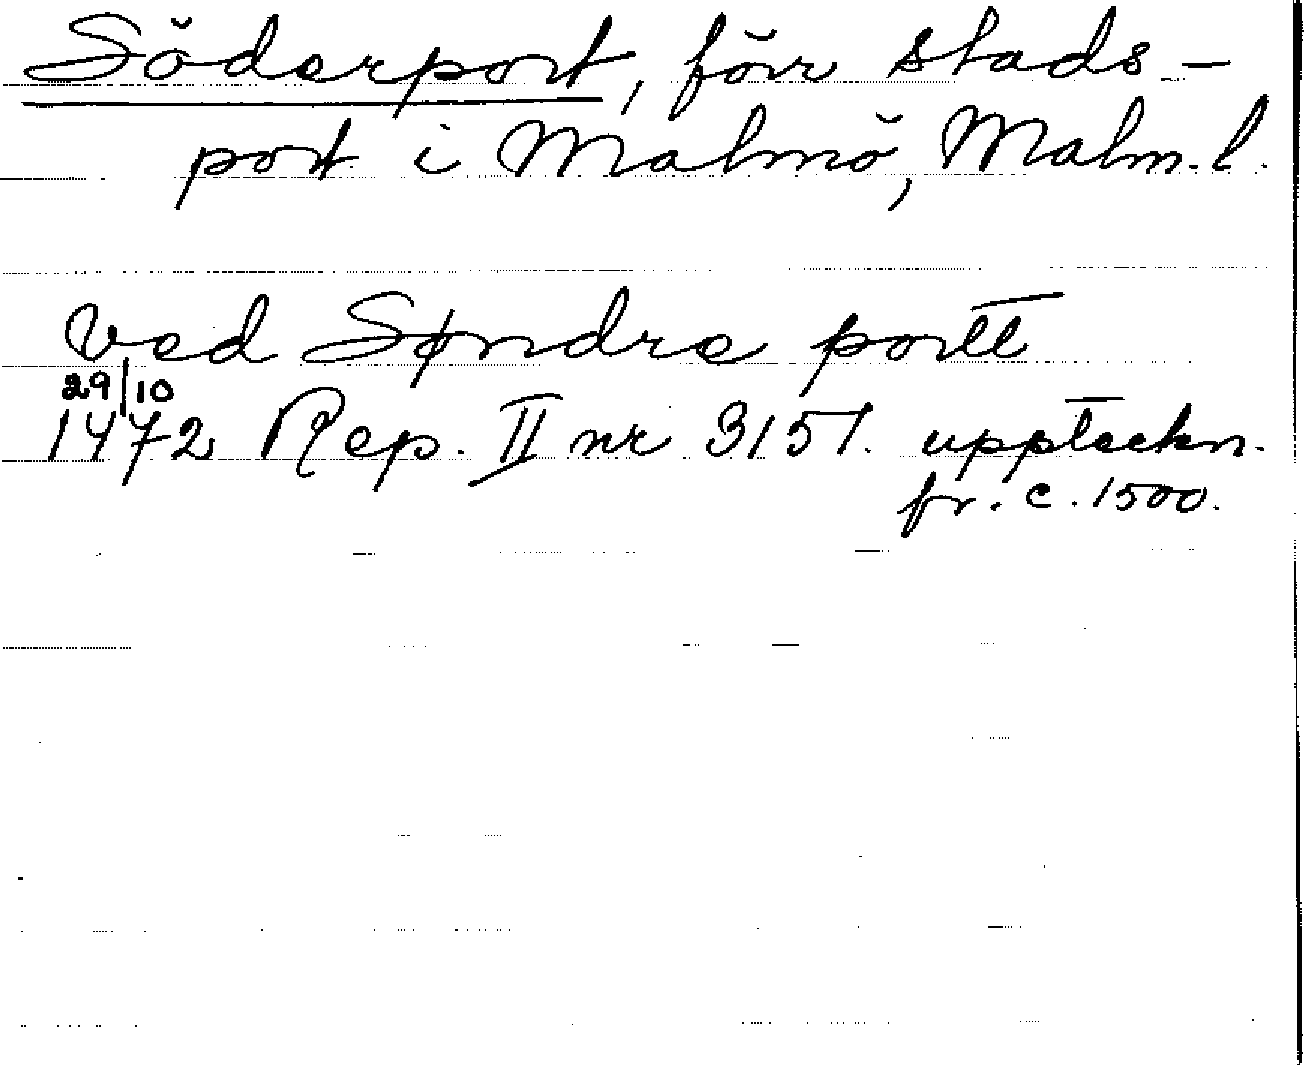 Söderport, förr stads-
port i Malmö, Malm. l.
ved Søndre portt
29/10
1472 Rep. II nr 3151. uppteckn.
fr. c. 1500.